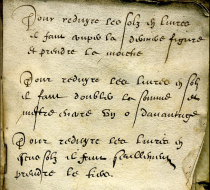 Pour reduyre les solz en livres
il faut couper la derniere figure
et prendre la moitie
Pour reduyre les livres en solz
il faut doubler la somme et
mettre encore un o davantage
Pour reduyre les livres en
solz il faut seullement
prendre le